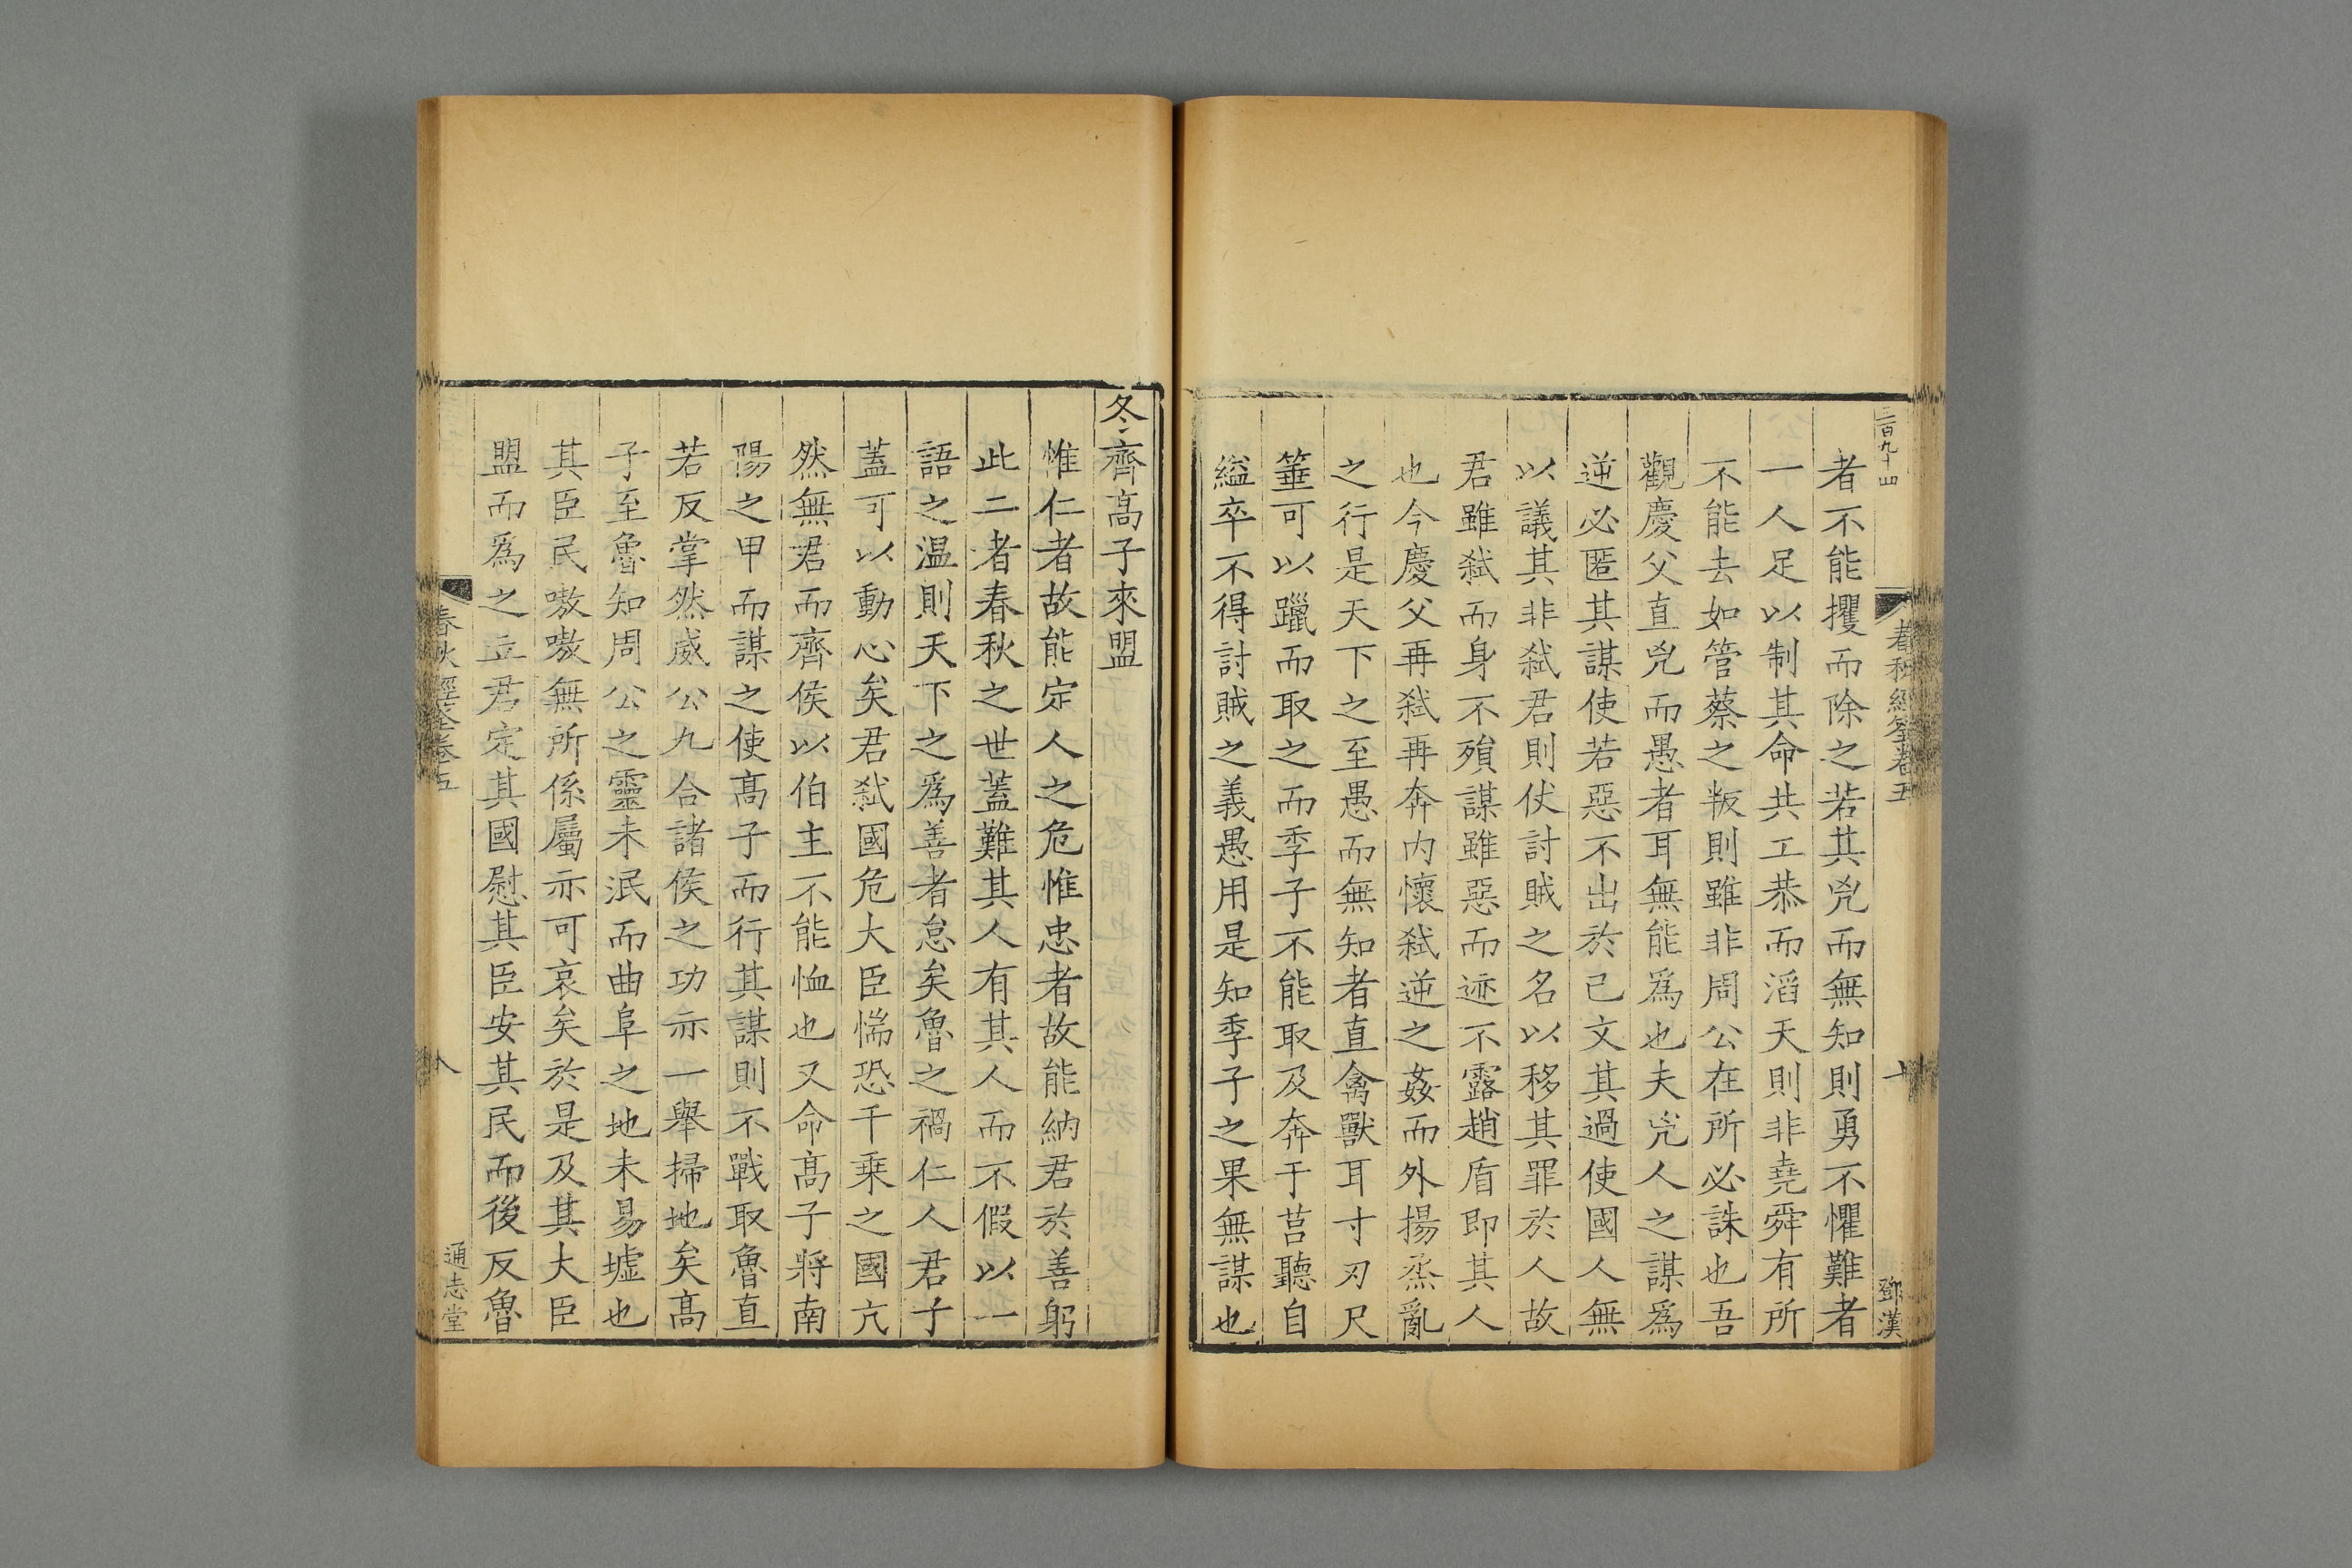 三百九十四
春秋經筌卷五
鄧漢
者不能攫而除之若其兇而無知則勇不懼難者
一人足以制其命共工恭而滔天則非堯舜有所
不能去如管蔡之叛則雖非周公在所必誅也吾
觀慶父直兇而愚者耳無能爲也夫兇人之謀爲
逆必匿其謀使若惡不出於己文其過使國人無
以議其非弑君則伏討賊之名以移其罪於人故
君雖弑而身不殞謀雖惡而迹不露趙盾即其人
也今慶父再弑再奔内懷弑逆之姦而外揚烝亂
之行是天下之至愚而無知者直禽獸耳寸刃尺
箠可以躐而取之而季子不能取及奔于莒聽自
縊卒不得討賊之義愚用是知季子之果無謀也
冬齊髙子來盟
惟仁者故能定人之危惟忠者故能納君於善躬
此二者春秋之世蓋難其人有其人而不假以一
語之温則天下之爲善者怠矣魯之禍仁人君子
蓋可以動心矣君弑國危大臣惴恐千乗之國亢
然無君而齊侯以伯主不能恤也又命髙子將南
陽之甲而謀之使髙子而行其謀則不戰取魯直
若反掌然威公九合諸侯之功亦一舉掃地矣髙
子至魯知周公之靈未泯而曲阜之地未易墟也
其臣民嗷嗷無所係屬亦可哀矣於是及其大臣
盟而爲之立君定其國慰其臣安其民而後反魯
春秋經筌卷五
八
通志堂